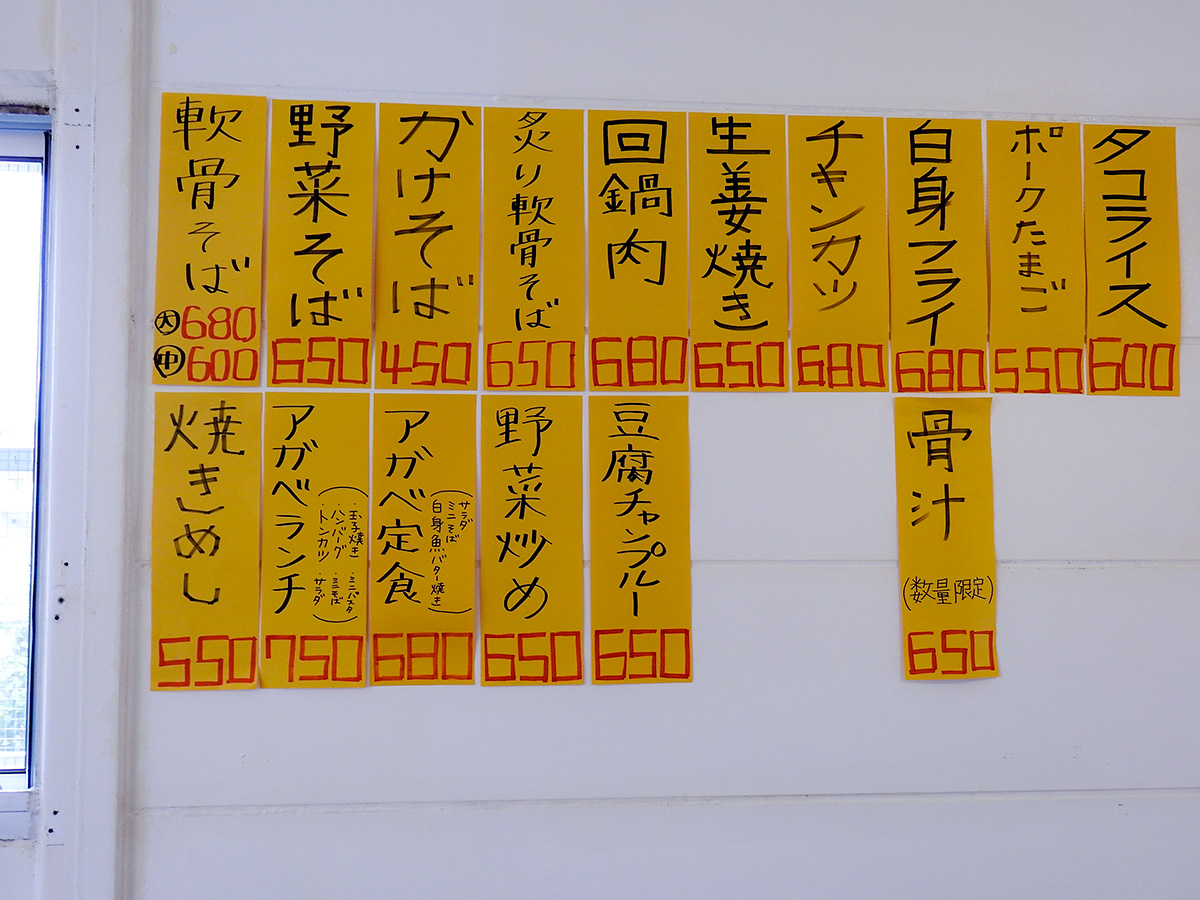 軟骨そば
大680
中600
野菜そば
650
かけそば
450
炙り軟骨そば
650
回鍋肉
680
生姜焼き
650
チキンカツ
680
白身フライ
680
ポークたまご
550
タコライス
600
焼きめし
550
アガベランチ
(・玉子焼き ・ミニパスタ
・ハンバーグ ・ミニそば
・トンカツ ・サラダ)
750
アガベ定食
(サラダ
ミニそば
白身魚バター焼き)
680
野菜炒め
650
豆腐チャンプルー
650
骨汁
(数量限定)
650